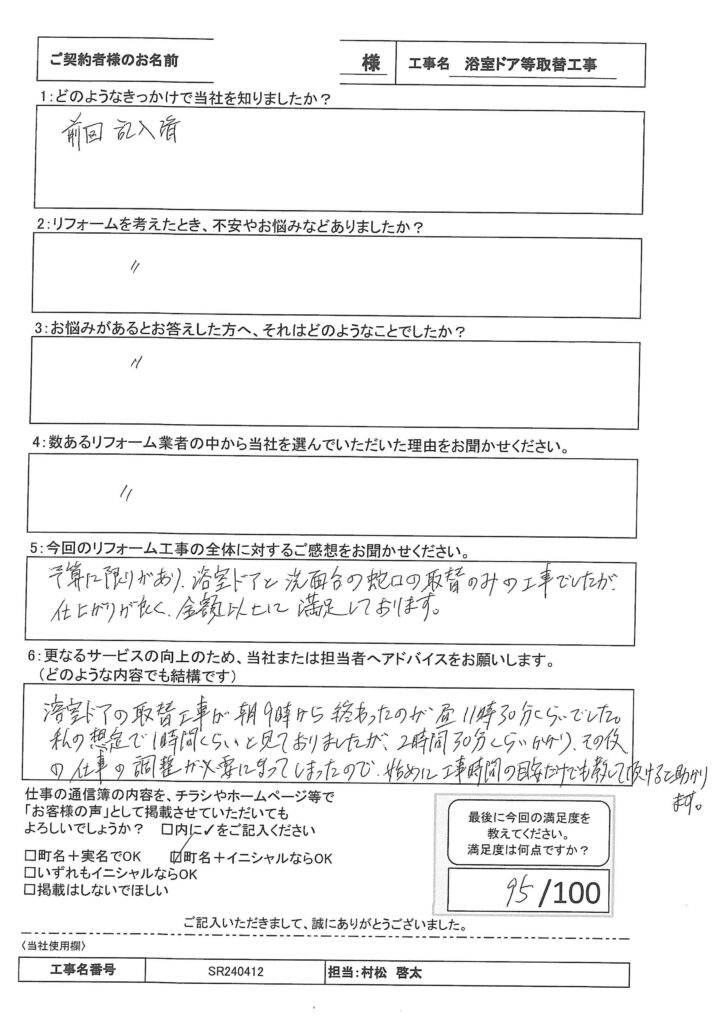 ご契約者様のお名前 様 工事名 浴室ドア等取替工事
1:どのようなきっかけで当社を知りましたか？
前回記入済
2:リフォームを考えたとき、不安やお悩みなどありましたか？
〃
3:お悩みがあるとお答えした方へ、それはどのようなことでしたか？
〃
4:数あるリフォーム業者の中から当社を選んでいただいた理由をお聞かせください。
〃
5:今回のリフォーム工事の全体に対するご感想をお聞かせください。
予算に限りがあり、浴室ドアと洗面台の蛇口の取替のみの工事でしたが、
仕上がりが良く、金額以上に満足しております。
6:更なるサービスの向上のため、当社または担当者へアドバイスをお願いします。
（どのような内容でも結構です）
浴室ドアの取替工事が朝9時から終わったのが昼11時30分くらいでした。
私の想定で1時間くらいと見ておりましたが、2時間30分くらいかかり、その後
の仕事の調整が必要になってしまったので、始めに工事時間の目安だけでも教して頂けると助かり
ます。
仕事の通信簿の内容を、チラシやホームページ等で
「お客様の声」として掲載させていただいても
よろしいでしょうか？ □内に✓をご記入ください
□町名＋実名でOK ☑町名＋イニシャルならOK
□いずれもイニシャルならOK
□掲載はしないでほしい
最後に今回の満足度を
教えてください。
満足度は何点ですか？
95/100
ご記入いただきまして、誠にありがとうございました。
〈当社使用欄〉
工事名番号 SR240412 担当：村松 啓太